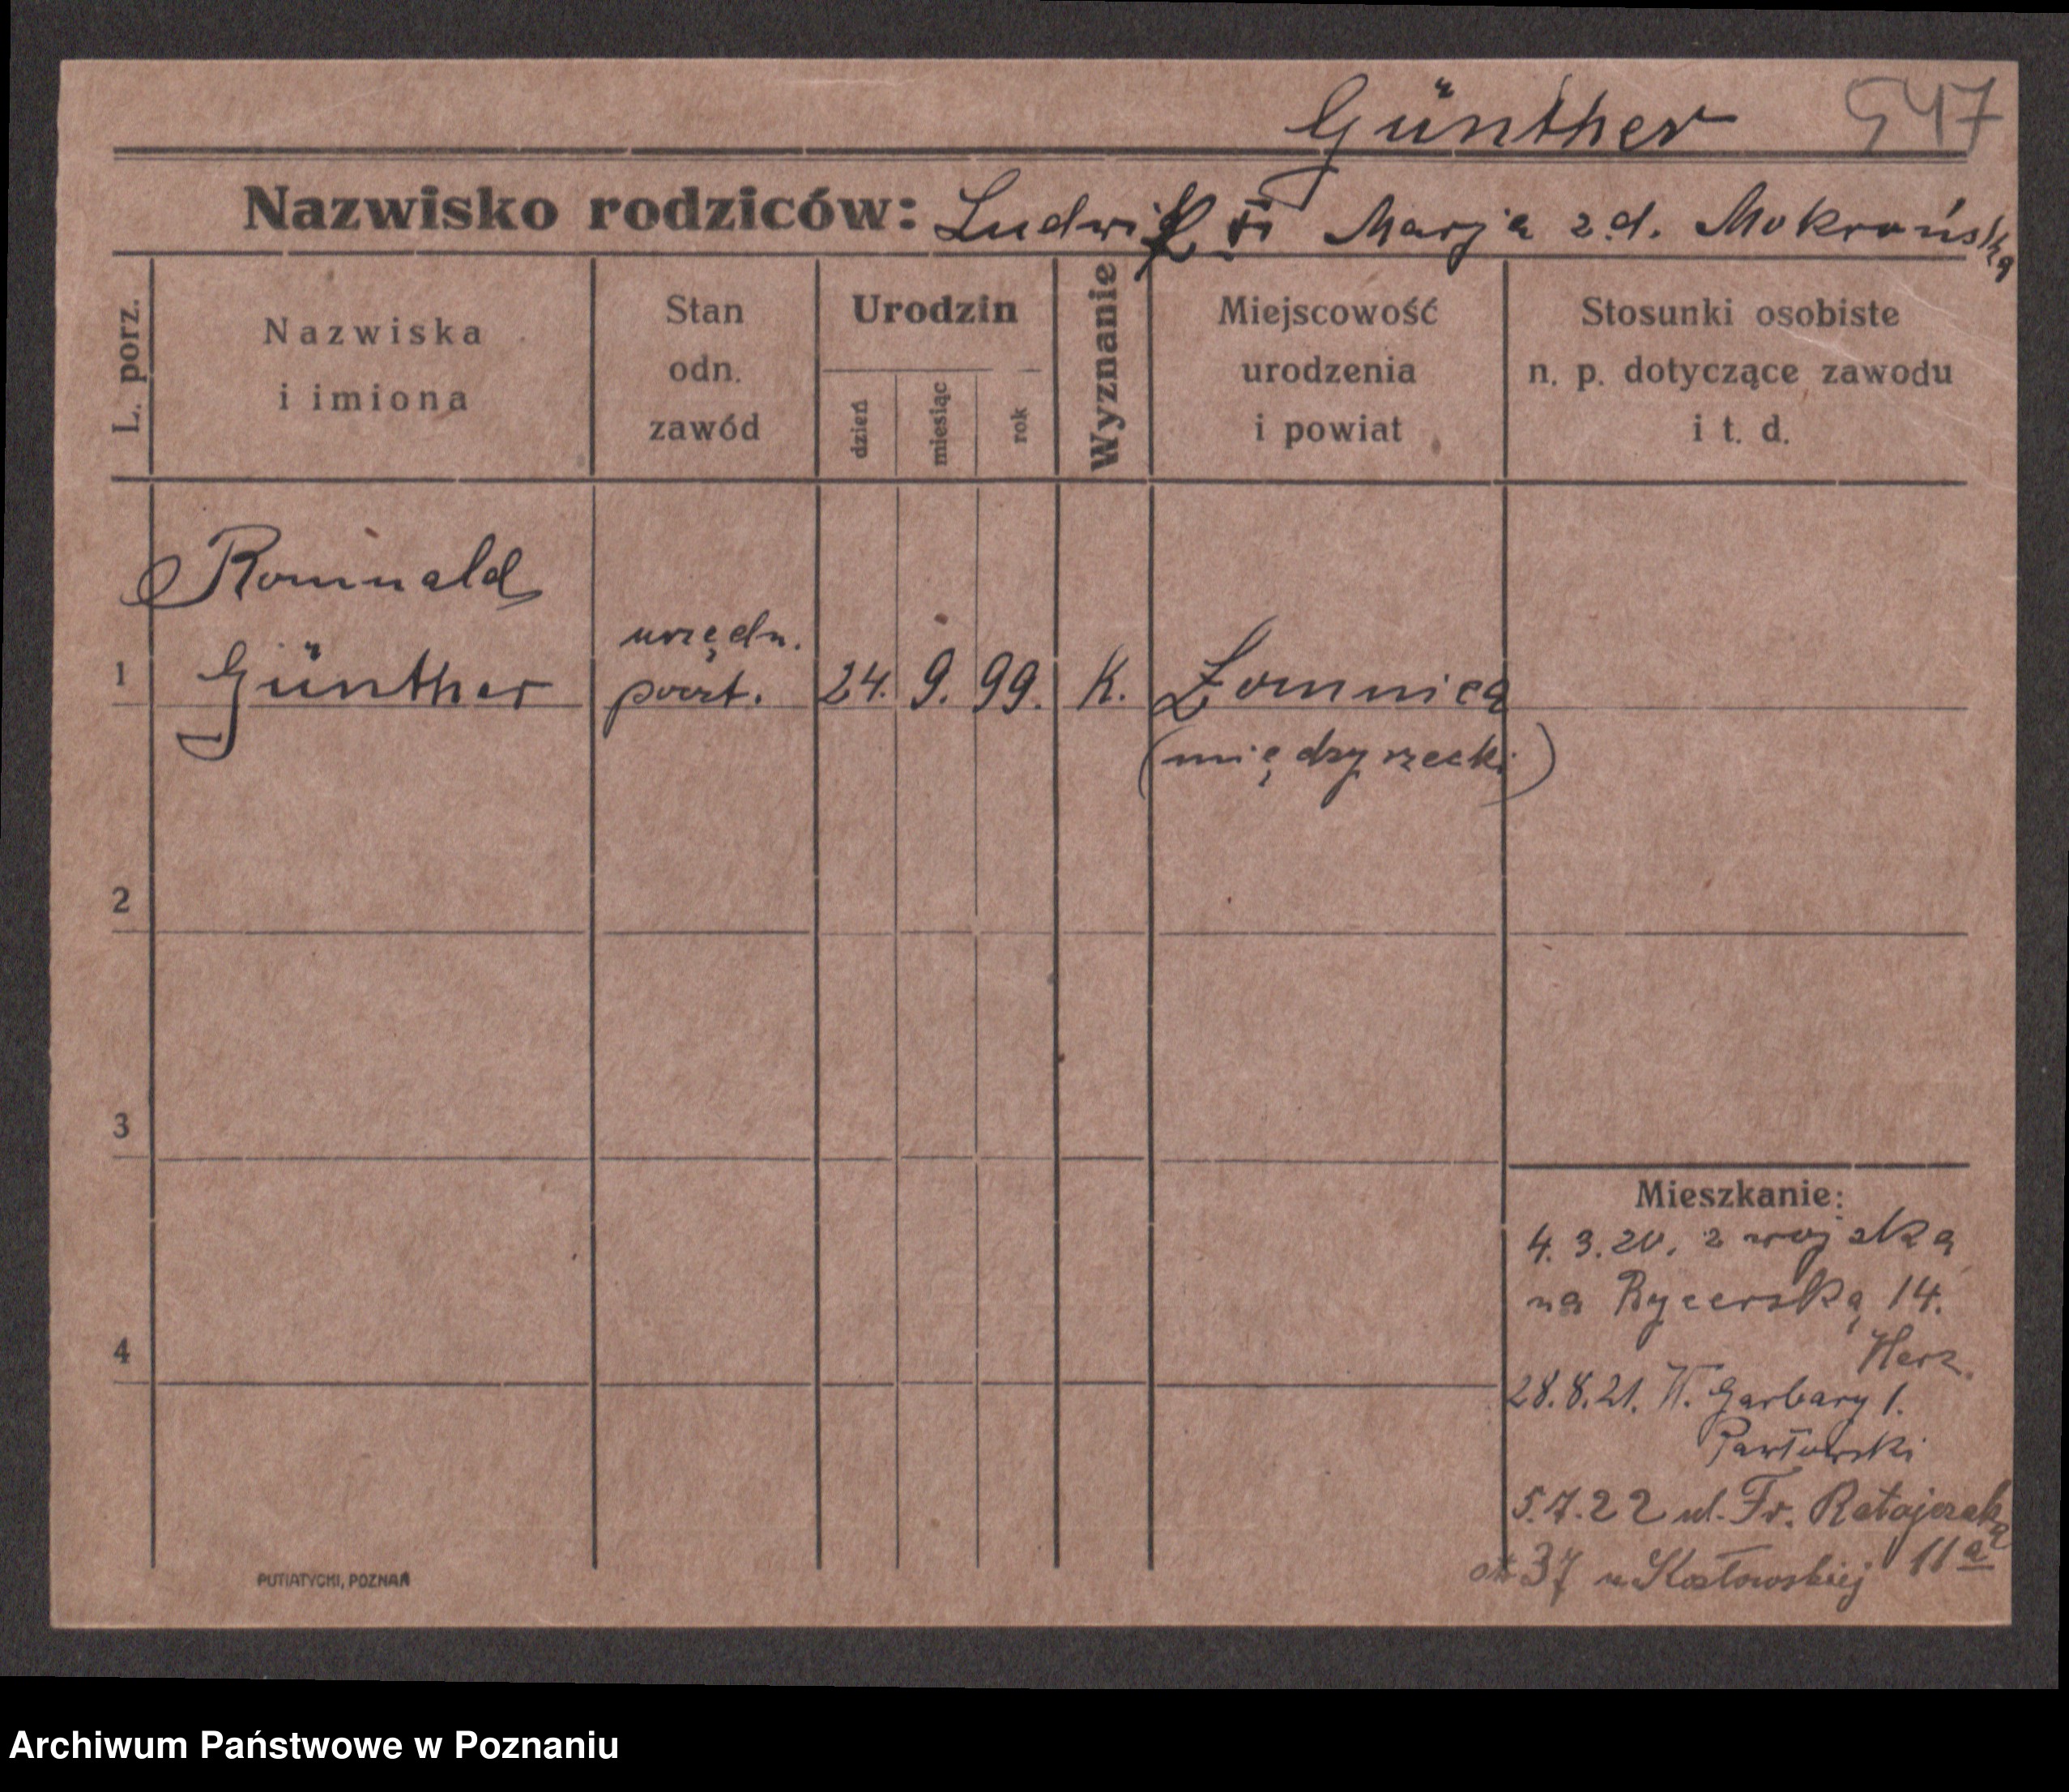 Günther
947
Nazwisko rodziców: Ludwik i Marja z d. Mokrońska
L. porz.
Nazwiska
i imiona
Stan
odn.
zawód
Urodzin
dzień
miesiąc
rok
Wyznanie
Miejscowość
urodzenia
i powiat
Stosunki osobiste
n. p. dotyczące zawodu
i t. d.
Romuald
urzędn.
1 Günther poczt. 24. 9. 99. K. Łomnica
(międzyrzecki)
2
3
4
Mieszkanie:
4.3.20. z wojska
na Rycerską 14.
Herz.
28.8.21. W. Garbary 1.
Pawłowski
5.7.22 ul. Fr. Ratajczaka
37 u Kozłowskiej 11a
PUTIATYCKI, POZNAŃ
Archiwum Państwowe w Poznaniu